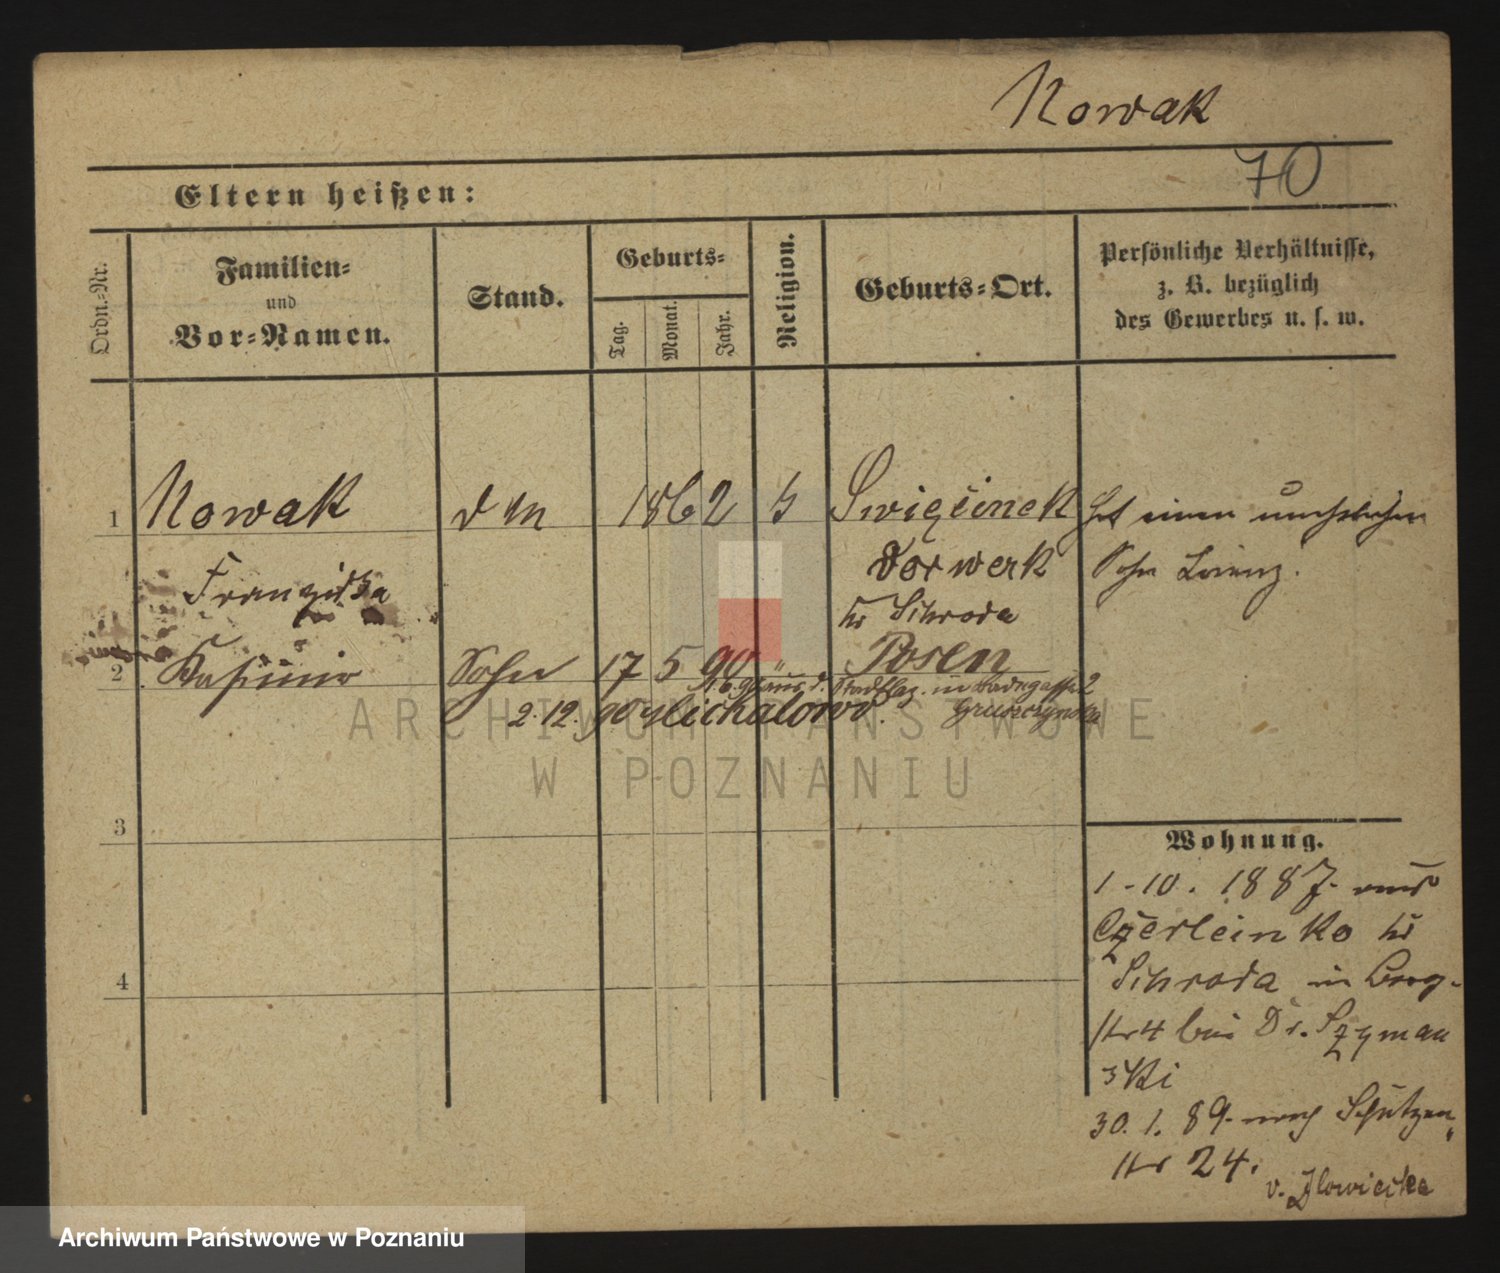 Nowak
70
Eltern heißen:
Ordn.-Nr.
Familien-
und
Vor-Namen.
Stand.
Geburts-
Tag.
Monat.
Jahr.
Religion.
Geburts-Ort.
Persönliche Verhältnisse,
z. B. bezüglich
des Gewerbes u. s. w.
1
Nowak
1862
Vorwerk
Schroda
Franziska
einen
Sohn Lorenz.
2
Kasimir
Sohn
17 5 90
Posen
2. 12.
3
4
Wohnung.
1-10. 1887. aus
Czerleinko
Schroda in Berg-
str 4 bei Dr. Szyman
ski
30. 1. 89. nach Schützen
str 24.
ARCHIWUM PAŃSTWOWE
W POZNANIU
Archiwum Państwowe w Poznaniu